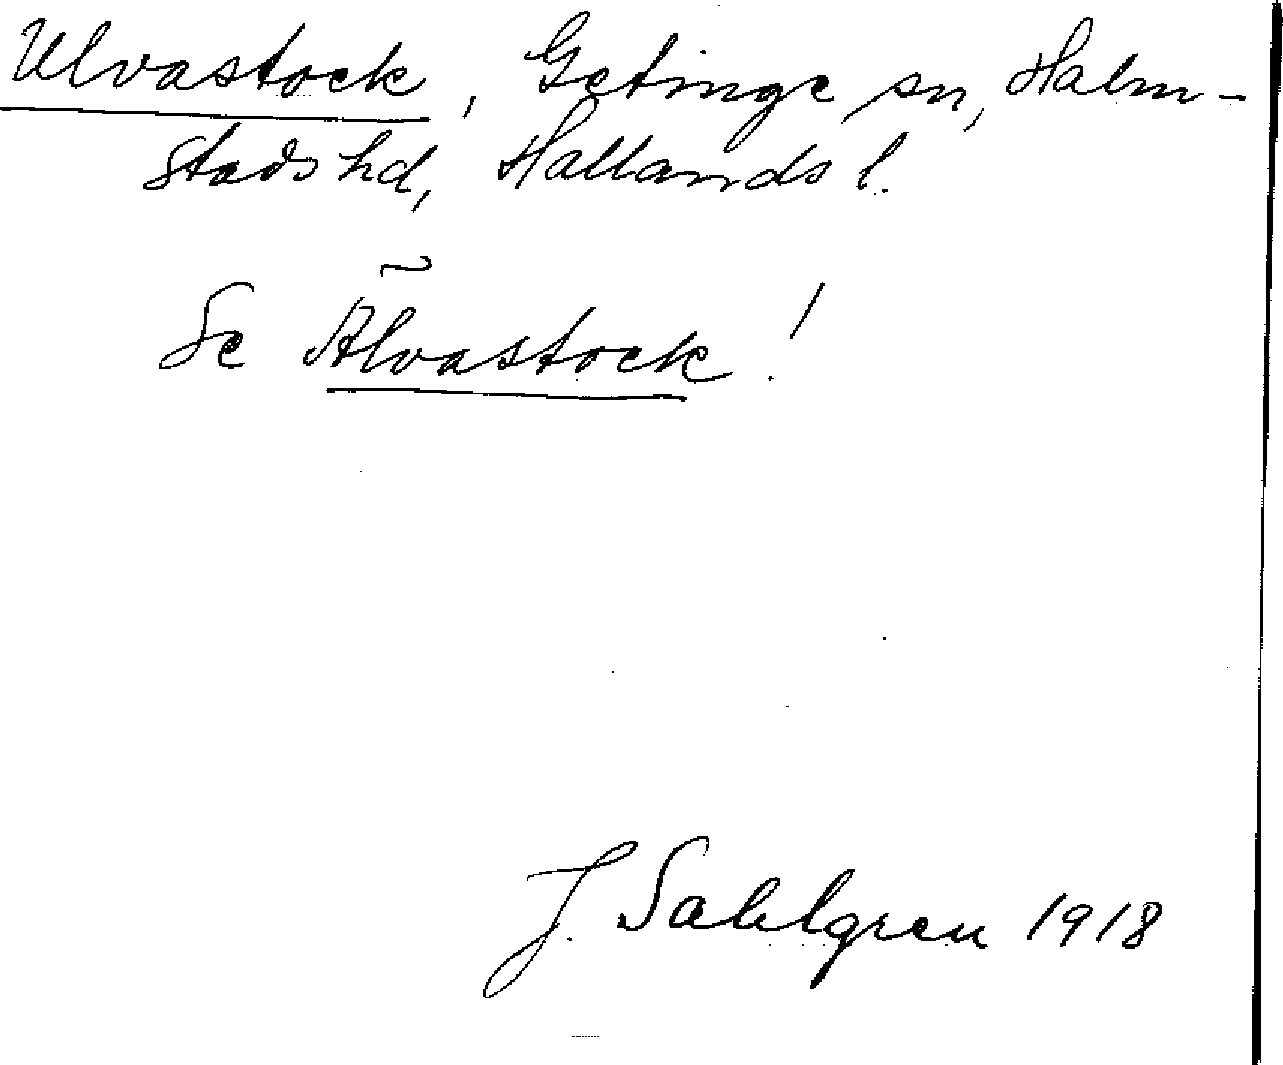 Ulvastock, Getinge sn, Halm-
stads hd, Hallands l.
Se Älvastock!
J. Sahlgren 1918